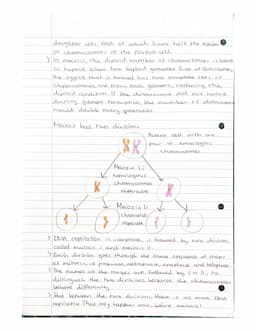 daughter cells, each of which have half the number
of chromosomes of the parent cell.
> In meiosis, the diploid number of chromosomes is halved
to haploid. When two haploid gametes fuse at fertilisation,
the zygote that is formed has two complete sets of
chromosomes, one from each gamete, restoring the
diploid condition. If the chromosome did not halve
during gamete formation, the number of chromosomes
would double every generation.
Meiosis has two divisions
Parent cell with one
pair of homologous
chromosomes
Meiosis I:
homologous
chromosomes
separate
Meiosis II:
chromatids
separate
> DNA replication is interphase, is followed by two divisions,
called meiosis I and meiosis II.
> Each division goes through the same sequence of stages
as mitosis i.e prophase, metaphase, anaphase and telophase.
> The names of the stages are followed by I or II, to
distinguish the two divisions because the chromosomes
behave differently.
> But between the two divisions, there is no more DNA
replication. That only happens once, before meiosis I.